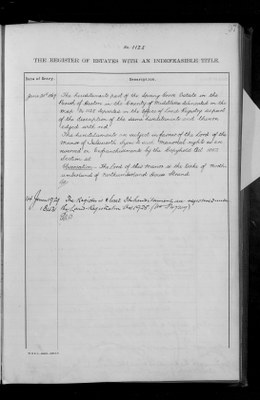 No. 1125
THE REGISTER OF ESTATES WITH AN INDEFEASIBLE TITLE.
Date of Entry.
Description.
The Hereditaments part of the Spring Grove Estate in the
Parish of Heston in the County of Middlesex delineated on the
Map No. 1125 deposited in the Office of Land Registry as part
of the description of the same hereditaments and thereon
edged with red.
The hereditaments are subject in favour of the Lord of the
Manor of Isleworth Syon to such Manorial rights as are
reserved on Enfranchisements by the Copyhold Act 1852
Section 48
Observation - The Lord of this Manor is the Duke of North-
umberland of Northumberland House Strand
The Register is closed the land
the Land Registration Act 1925